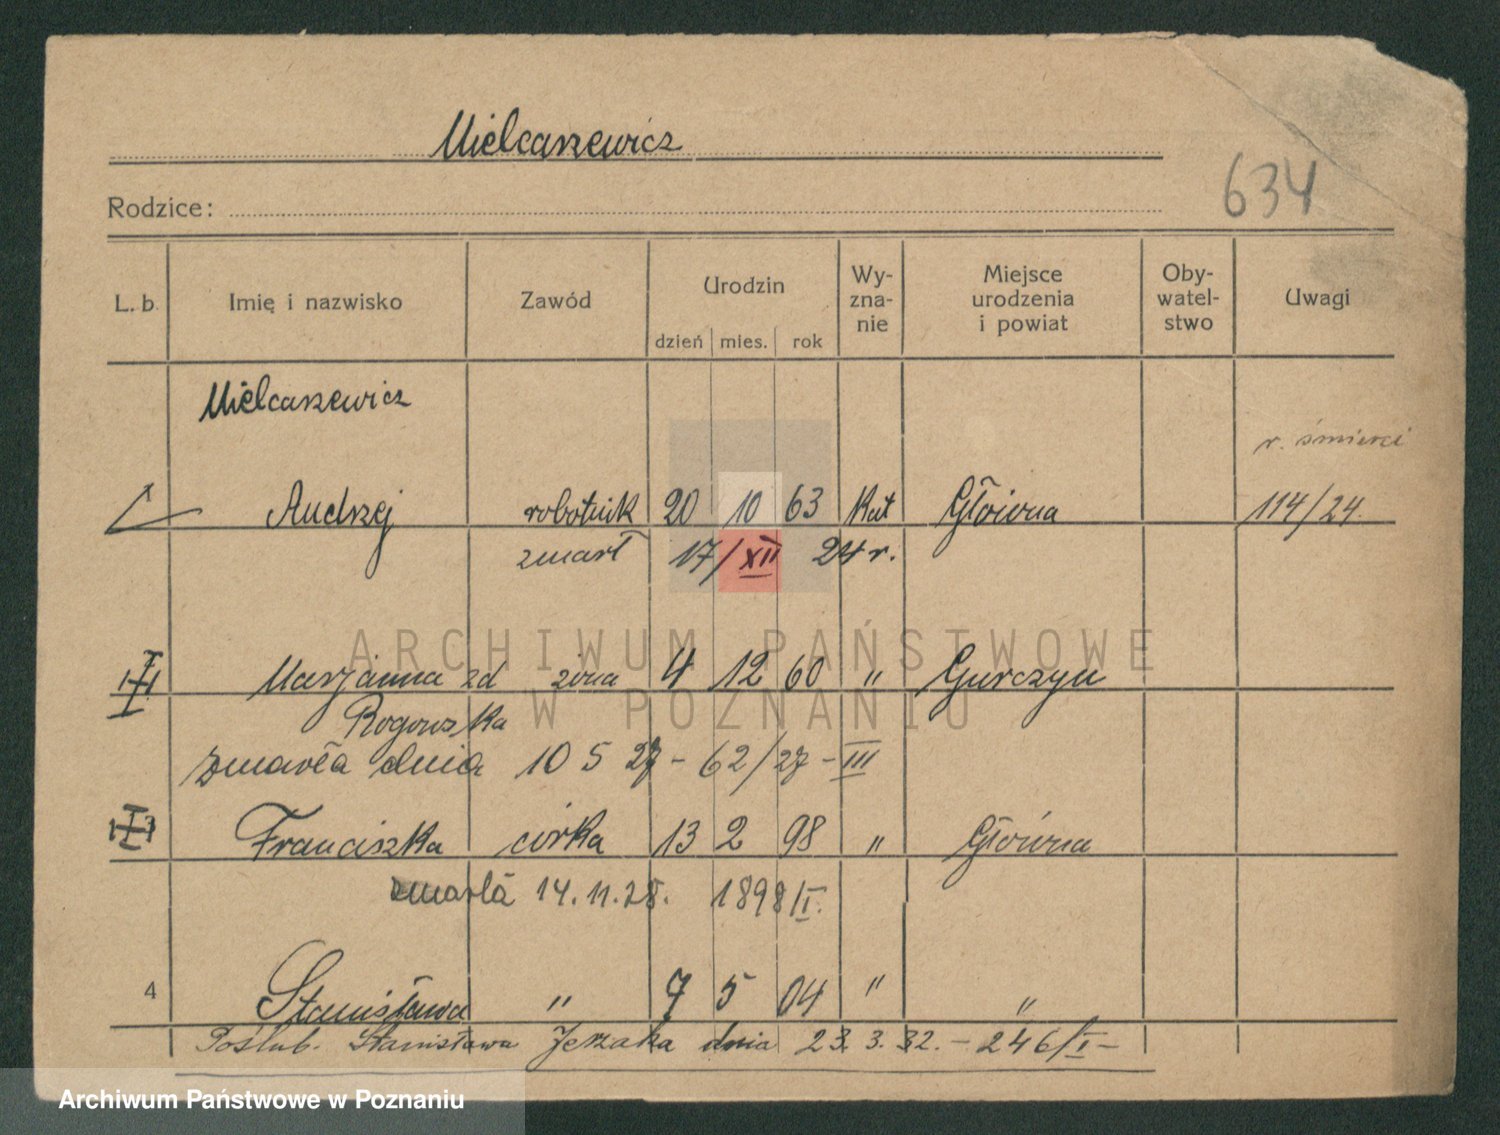 Mielcarzewicz
634
Rodzice:
L. b. Imię i nazwisko Zawód Urodzin dzień mies. rok Wy-zna-nie Miejsce urodzenia i powiat Oby-watel-stwo Uwagi
Mielcarzewicz
r. śmierci
Andrzej robotnik 20 10 63 Kat Główna 114/24.
zmarł 17/XII 24 r.
ARCHIWUM PAŃSTWOWE
Marjanna zd żona 4 12 60 " Gurczyn
W POZNANIU
Rogowska
zmarła dnia 10 5 27 - 62/27 - III
Franciszka córka 13 2 98 " Główna
zmarła 14.11.28. 1898/I.
4 Stanisława " 7 5 04 " "
Poślub. Stanisława Jerzaka dnia 23.3.32. - 246/I -
Archiwum Państwowe w Poznaniu